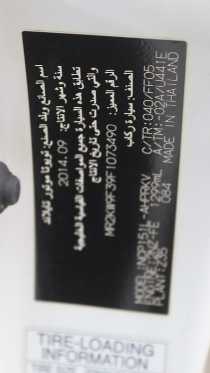 اسم الصانع وبلد الصنع: تويوتا موتور تايلاند
سنة وشهر الإنتاج: 2014.09
تطابق هذه السيارة جميع المواصفات القياسية الخليجية
والتي صدرت حتى تاريخ الإنتاج
الرقم المميز: MR2KW9F39F1073490
الصنف: سيارة ركاب
MODEL: NCP151L-AHPRKV
ENGINE: 2NZ-FE 1299mL
PLANT: Z05 084
C/TR: 040/FF05
A/TM: -02A/U441E
MADE IN THAILAND
TIRE-LOADING
INFORMATION